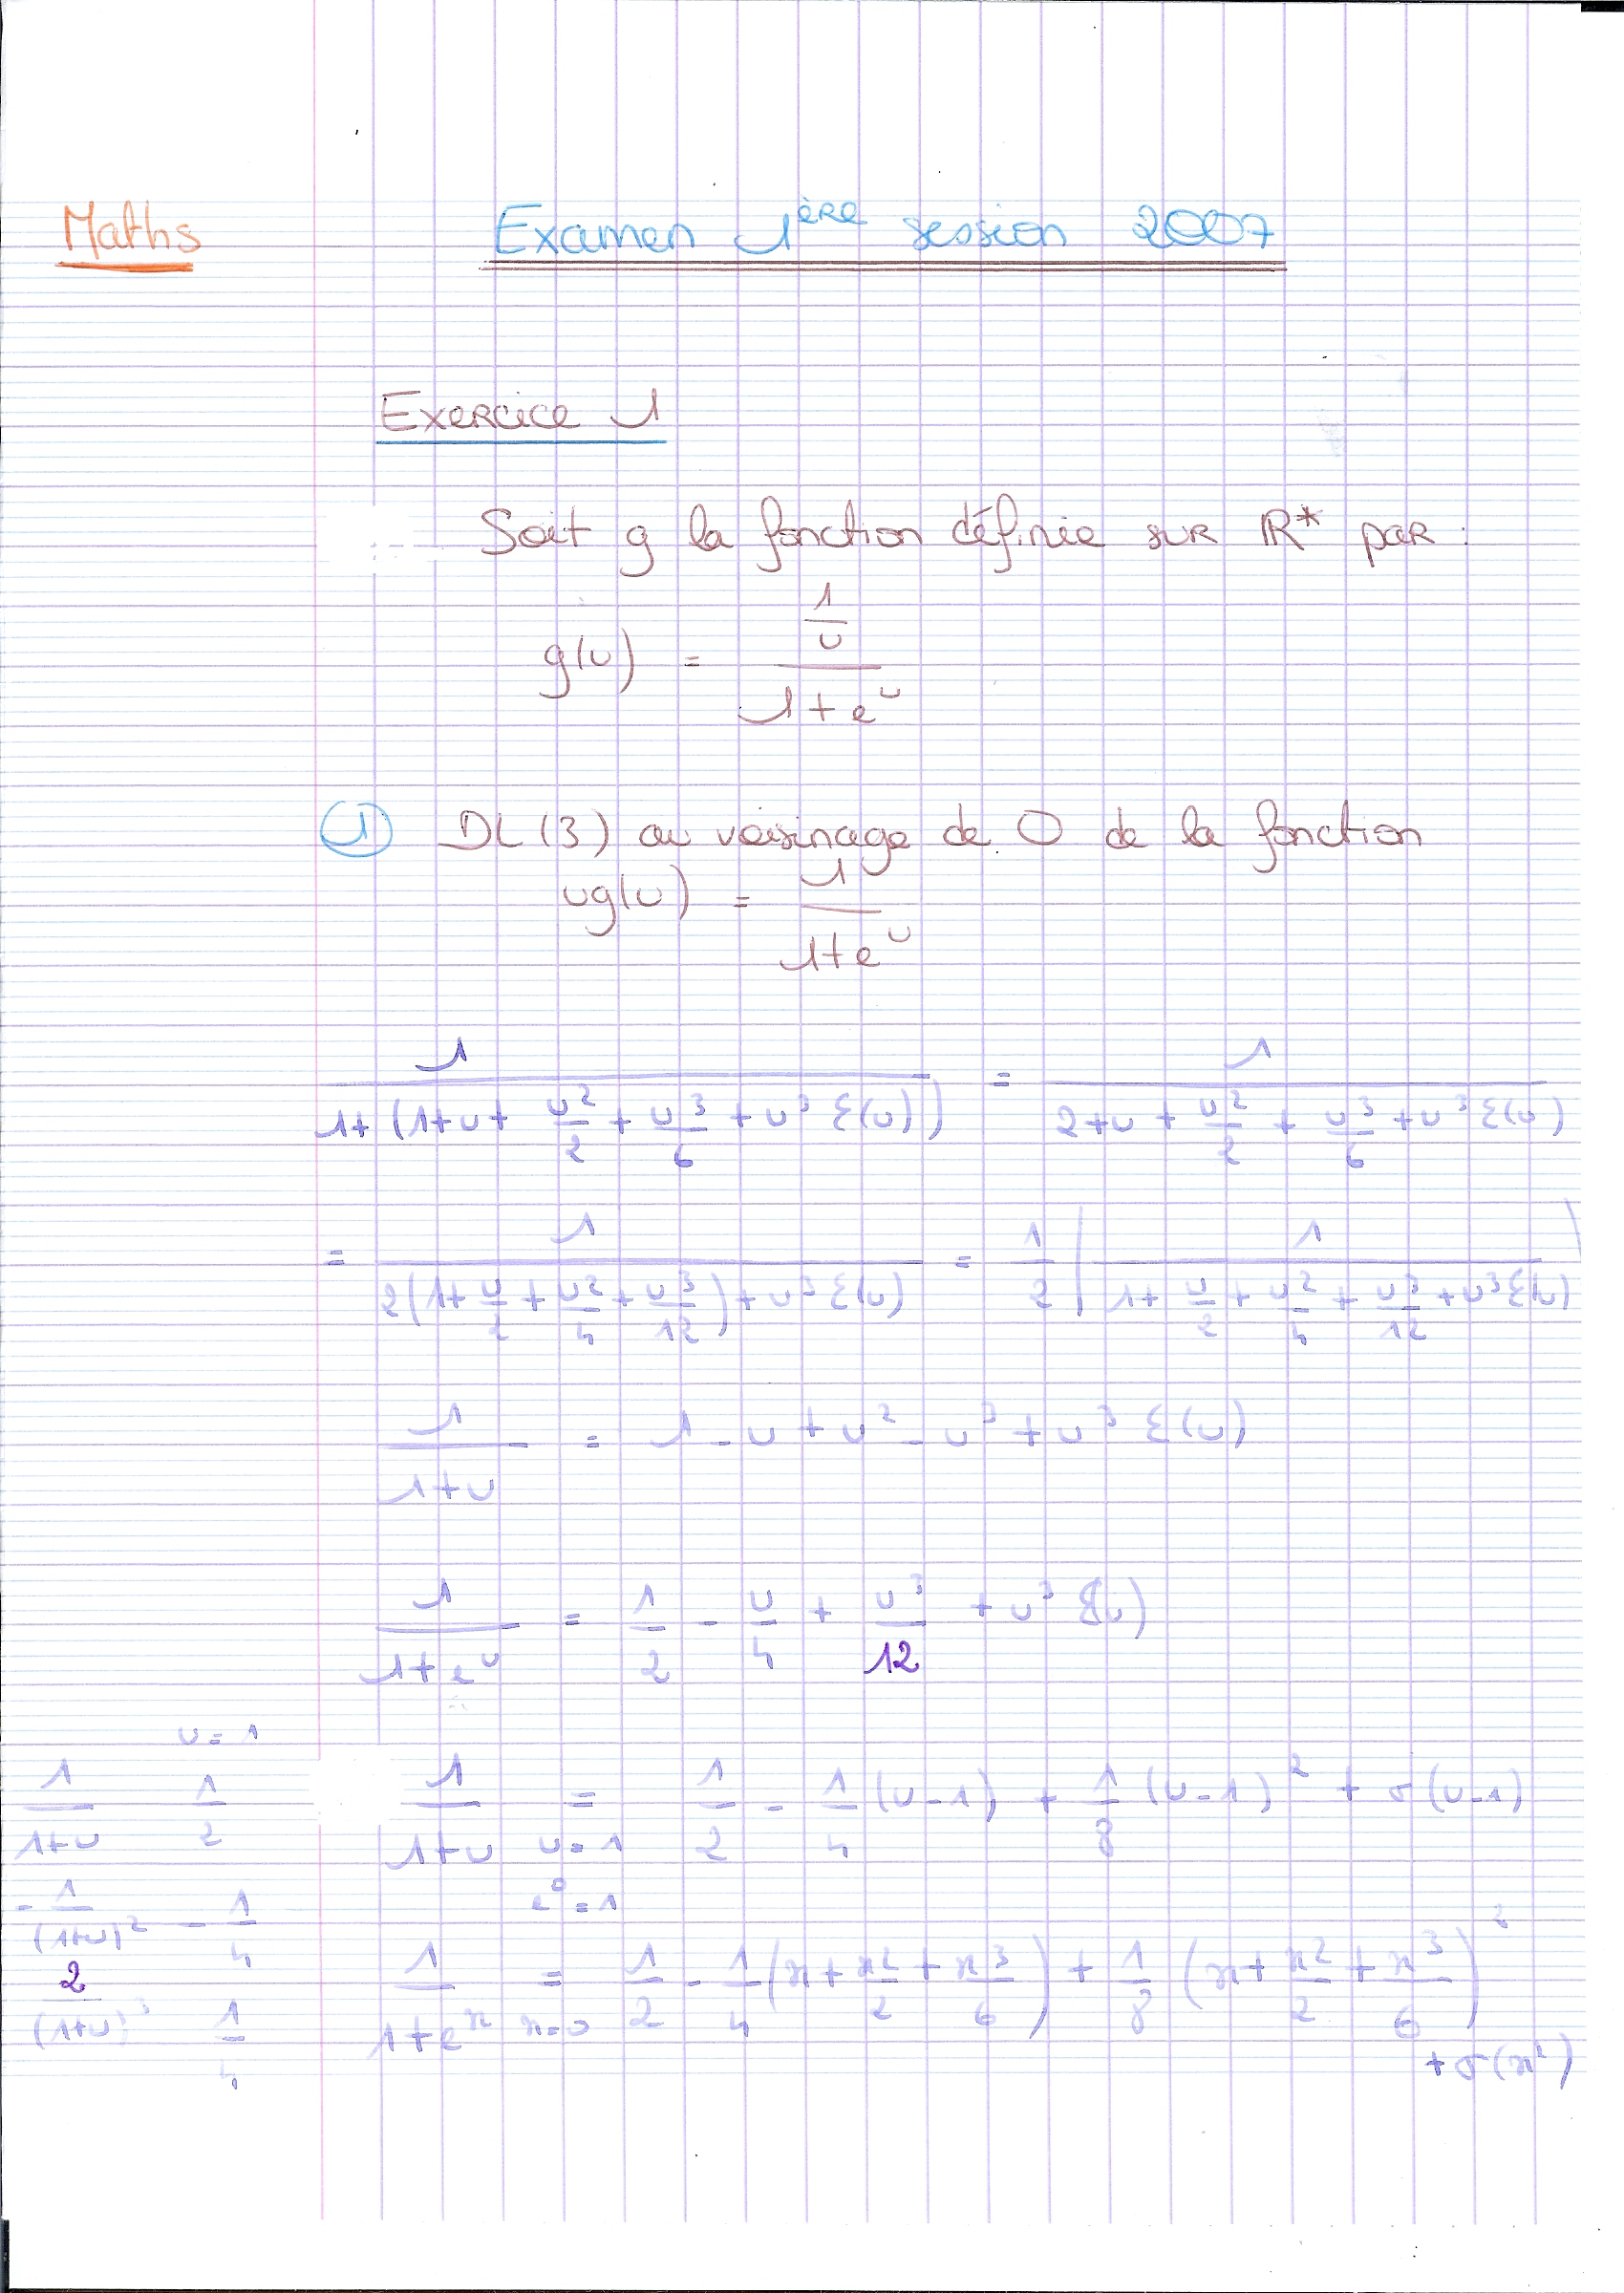 Maths
Examen 1ère session 2007
Exercice 1
Soit g la fonction définie sur ℝ* par :
g(u) = (1/u)/(1+e^u)
① DL(3) au voisinage de 0 de la fonction
ug(u) = 1/(1+e^u)
1/(1+(1+u+u²/2+u³/6+u³ε(u))) = 1/(2+u+u²/2+u³/6+u³ε(u))
= 1/(2(1+u/2+u²/4+u³/12)+u³ε(u)) = 1/2 (1/(1+u/2+u²/4+u³/12+u³ε(u)))
1/(1+u) = 1-u+u²-u³+u³ε(u)
1/(1+e^u) = 1/2 - u/4 + u³/12 + u³ε(u)
u=1
1/(1+u) 1/2
1/(1+u) u=1 = 1/2 - 1/4 (u-1) + 1/8 (u-1)² + σ(u-1)
-1/(1+u)² -1/4
e⁰=1
2/(1+u)³ 1/4
1/(1+e^x) x=0 = 1/2 - 1/4 (x+x²/2+x³/6) + 1/8 (x+x²/2+x³/6)²
+ σ(x²)